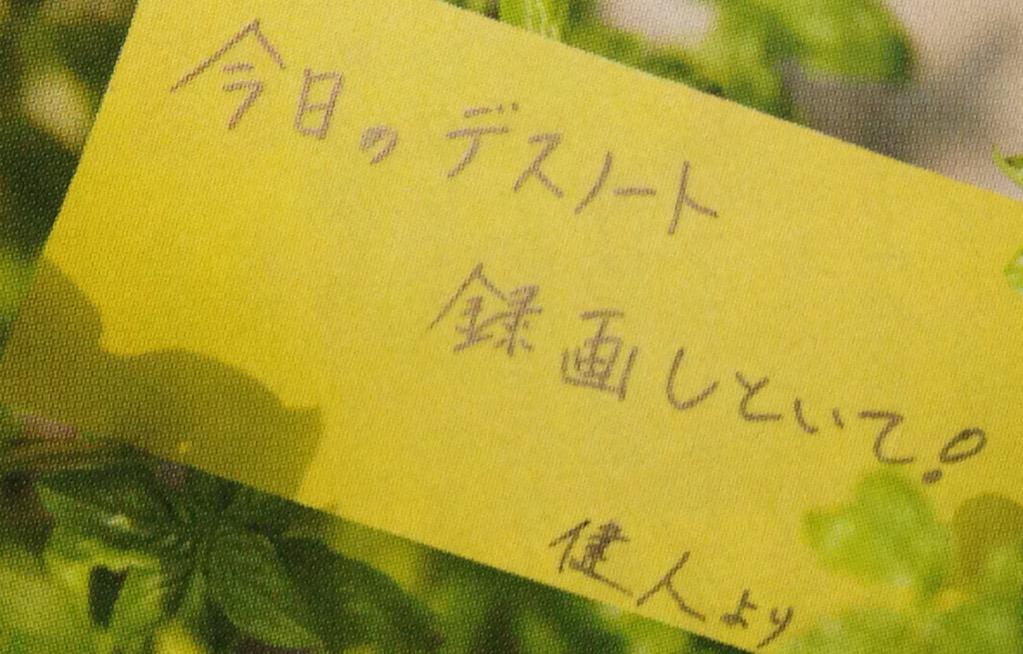 今日のデスノート
録画しといて!
健人より